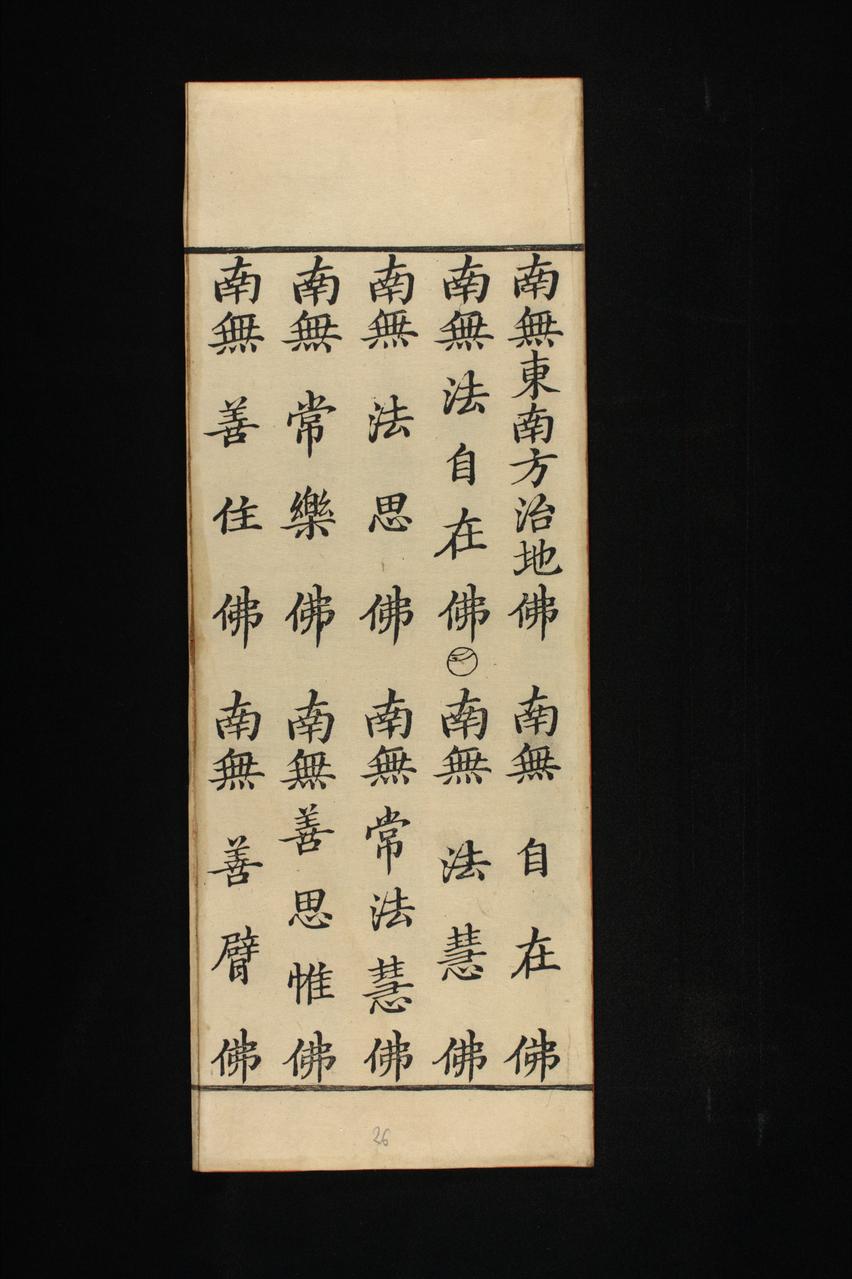 南無東南方治地佛南無自在佛
南無法自在佛南無法慧佛
南無法思佛南無常法慧佛
南無常樂佛南無善思惟佛
南無善住佛南無善臂佛
26